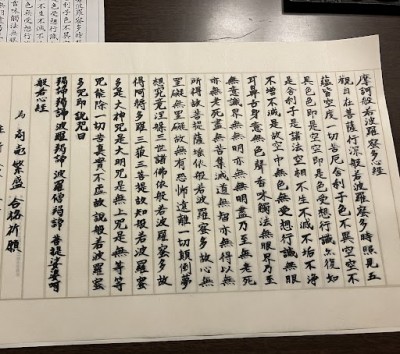 摩訶般若波羅蜜多心経
観自在菩薩行深般若波羅蜜多時照見五
蘊皆空度一切苦厄舎利子色不異空空不
異色色即是空空即是色受想行識亦復如
是舎利子是諸法空相不生不滅不垢不浄
不増不減是故空中無色無受想行識無眼
耳鼻舌身意無色声香味触法無眼界乃至
無意識界無無明亦無無明尽乃至無老死
亦無老死尽無苦集滅道無智亦無得以無
所得故菩提薩埵依般若波羅蜜多故心無
罣礙無罣礙故無有恐怖遠離一切顛倒夢
想究竟涅槃三世諸仏依般若波羅蜜多故
得阿耨多羅三藐三菩提故知般若波羅蜜
多是大神呪是大明呪是無上呪是無等等
呪能除一切苦真実不虚故説般若波羅蜜
多呪即説呪曰
羯諦羯諦波羅羯諦波羅僧羯諦菩提薩婆訶
般若心経
為 商売繁盛 合格祈願